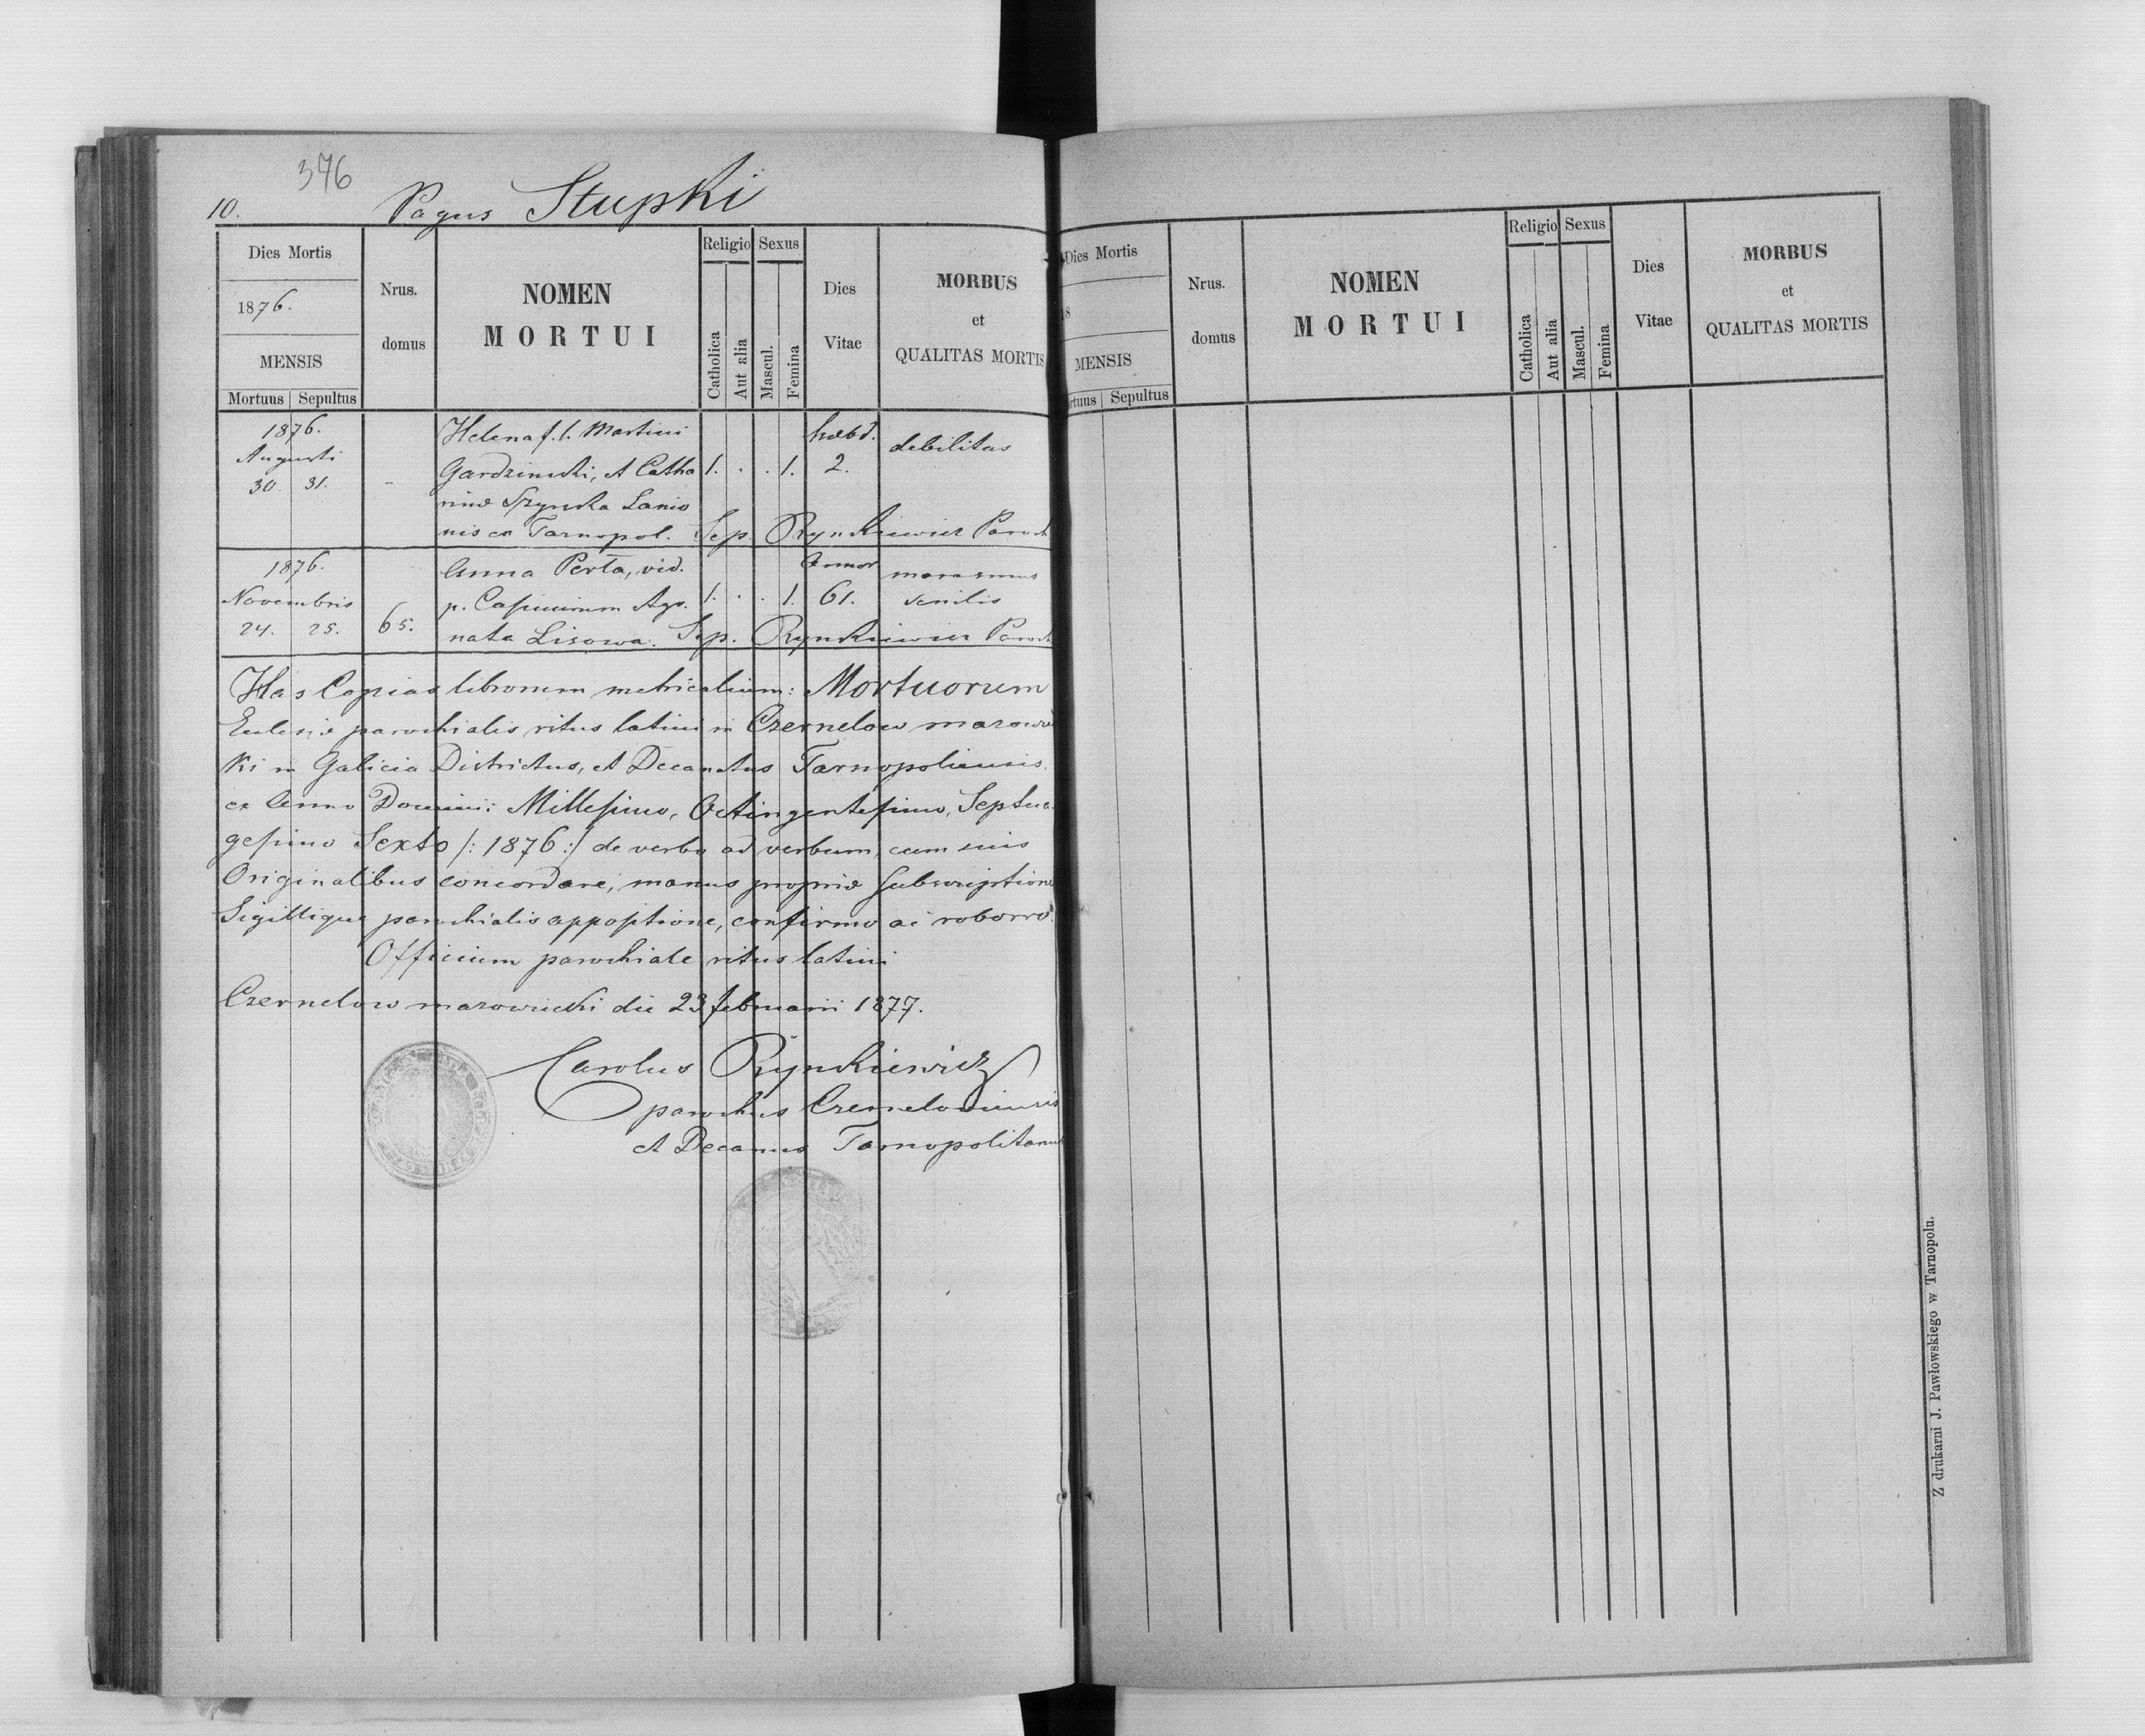 376
10. Pagus Stupki
Dies Mortis
1876.
MENSIS
Mortuus Sepultus
Nrus. domus
NOMEN MORTUI
Religio
Catholica
Aut alia
Sexus
Mascul.
Femina
Dies Vitae
MORBUS et QUALITAS MORTIS
1876. Helena f. l. Martini hebd. debilitas
Augusti Gardzinski, et Catha 1. . . 1. 2.
30. 31. -
rinæ Lanio
nis ex Tarnopol. Sep. Rynkiewicz Paroch
1876. Anna Perta, vid. Annor marasmus
Novembris p. Casimirum Agr. 1. . . 1. 61. senilis
24. 25. 65. nata Lisowa. Sep. Rynkiewicz Paroch
Has Copias librorum metricalium: Mortuorum
Eclesiæ parochialis ritus latini in Czernelow mazowie
ki in Galicia Districtus, et Decanatus Tarnopoliensis
ex Anno Domini: Millesimo, Octingentesimo, Septua
gesimo Sexto /: 1876 :/ de verbo ad verbum, cum suis
Originalibus concordare, manus propriæ subscriptione
Sigillique parochialis appositione, confirmo ac roborro.
Officium parochiale ritus latini
Czernelow mazowiecki die 23 februarii 1877.
Carolus Rynkiewicz
parochus Czerneloviensis
et Decanus Tarnopolitanus
Dies Mortis
18
MENSIS
rtuus Sepultus
Nrus. domus
NOMEN MORTUI
Religio
Catholica
Aut alia
Sexus
Mascul.
Femina
Dies Vitae
MORBUS et QUALITAS MORTIS
Z drukarni J. Pawłowskiego w Tarnopolu.